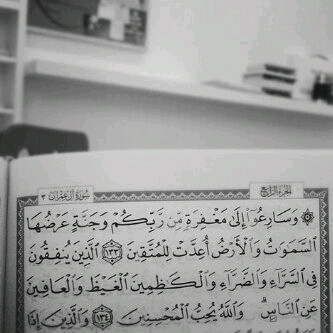 الجزء الرابع
سورة آل عمران ٣
۞ وَسَارِعُوٓا۟ إِلَىٰ مَغْفِرَةٍ مِّن رَّبِّكُمْ وَجَنَّةٍ عَرْضُهَا
ٱلسَّمَٰوَٰتُ وَٱلْأَرْضُ أُعِدَّتْ لِلْمُتَّقِينَ ١٣٣ ٱلَّذِينَ يُنفِقُونَ
فِي ٱلسَّرَّآءِ وَٱلضَّرَّآءِ وَٱلْكَٰظِمِينَ ٱلْغَيْظَ وَٱلْعَافِينَ
عَنِ ٱلنَّاسِ ۗ وَٱللَّهُ يُحِبُّ ٱلْمُحْسِنِينَ ١٣٤ وَٱلَّذِينَ إِذَا